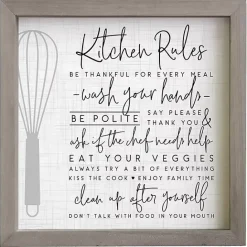 Kitchen Rules
BE THANKFUL FOR EVERY MEAL
wash your hands
BE POLITE SAY PLEASE THANK YOU &
ask if the chef needs help
EAT YOUR VEGGIES
ALWAYS TRY A BIT OF EVERYTHING
KISS THE COOK ♥ ENJOY FAMILY TIME
clean up after yourself
DON'T TALK WITH FOOD IN YOUR MOUTH